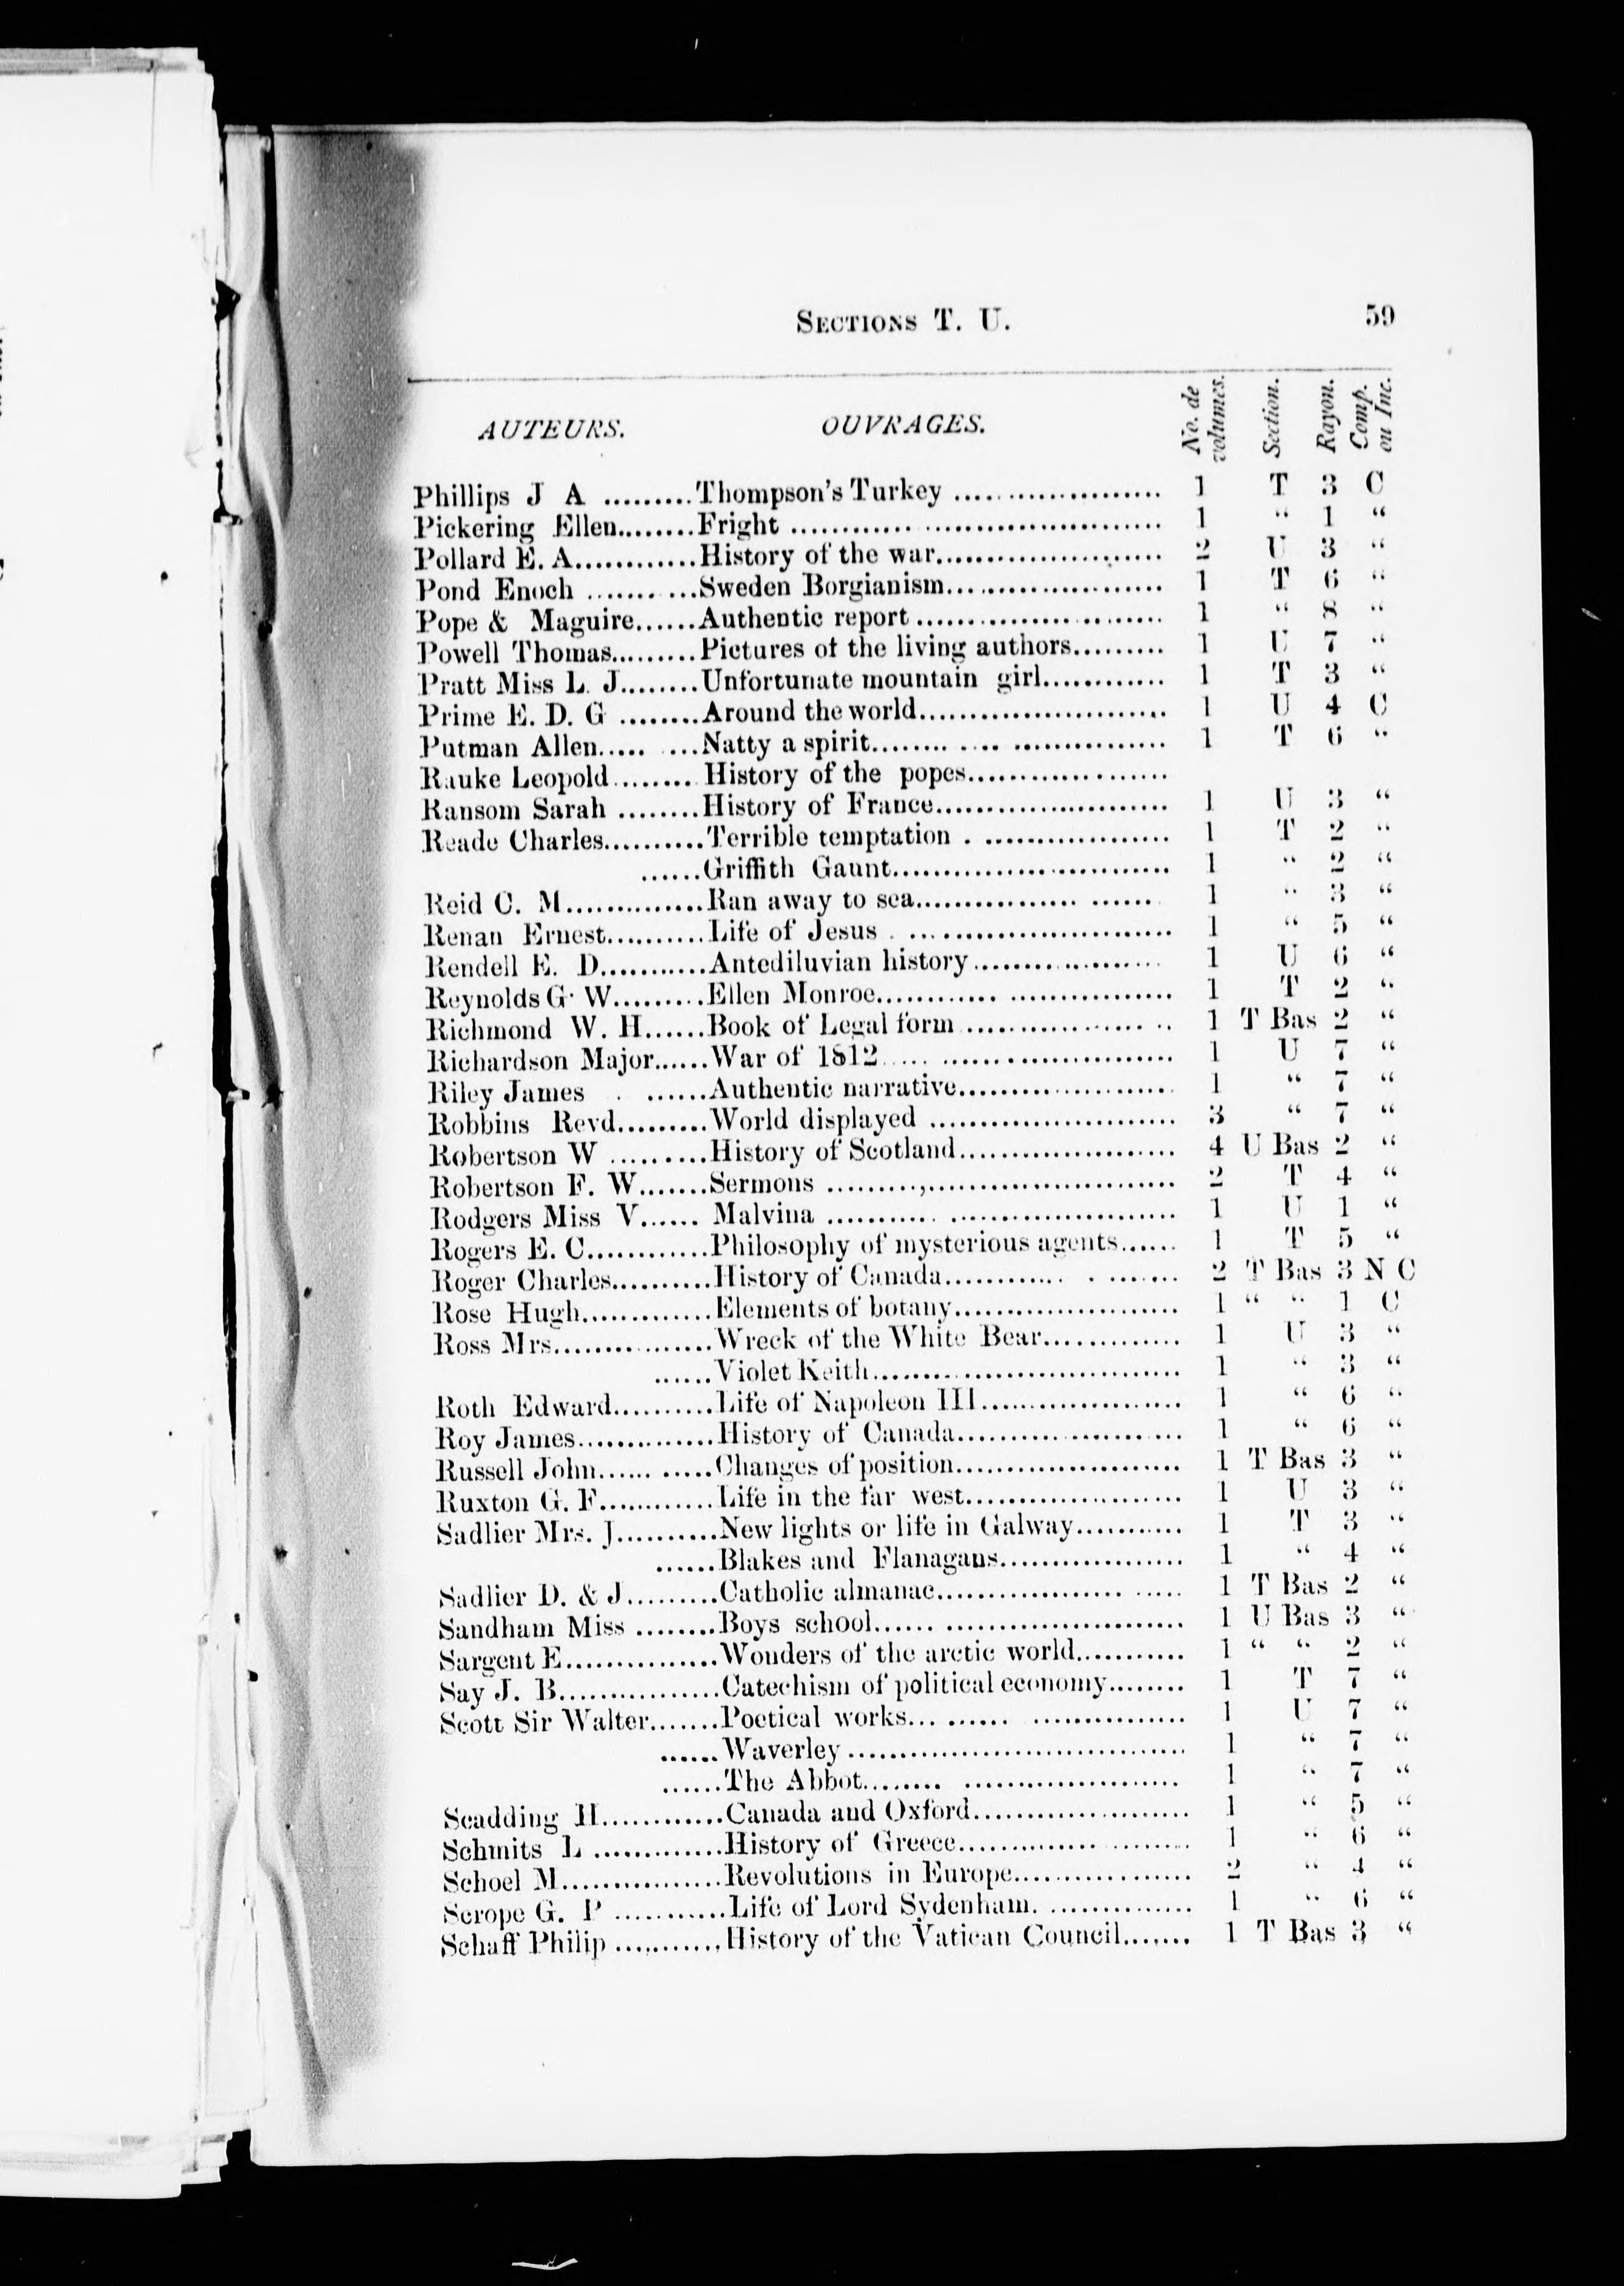 SECTIONS T. U. 59
AUTEURS. OUVRAGES. No. de volumes. Section. Rayon. Comp. ou Inc.
Phillips J A .........Thompson's Turkey ..................... 1 T 3 C
Pickering Ellen........Fright .................................... 1 “ 1 “
Pollard E. A............History of the war....................... 2 U 3 “
Pond Enoch ...........Sweden Borgianism...................... 1 T 6 “
Pope & Maguire......Authentic report ......................... 1 “ 8 “
Powell Thomas.........Pictures of the living authors......... 1 U 7 “
Pratt Miss L. J........Unfortunate mountain girl............ 1 T 3 “
Prime E. D. G ........Around the world......................... 1 U 4 C
Putman Allen..... ...Natty a spirit........ .... ............... 1 T 6 “
Rauke Leopold......... History of the popes....................
Ransom Sarah ........History of France........................ 1 U 3 “
Reade Charles..........Terrible temptation . ................... 1 T 2 “
......Griffith Gaunt............................ 1 “ 2 “
Reid C. M..............Ran away to sea................ ....... 1 “ 3 “
Renan Ernest..........Life of Jesus . ........................... 1 “ 5 “
Rendell E. D...........Antediluvian history................... 1 U 6 “
Reynolds G· W.........Ellen Monroe............ ................ 1 T 2 “
Richmond W. H......Book of Legal form .................. .. 1 T Bas 2 “
Richardson Major......War of 1812..... ....................... 1 U 7 “
Riley James . ......Authentic narrative...................... 1 “ 7 “
Robbins Revd.........World displayed ......................... 3 “ 7 “
Robertson W ..........History of Scotland...................... 4 U Bas 2 “
Robertson F. W.......Sermons .........,......................... 2 T 4 “
Rodgers Miss V...... Malvina ........... ....................... 1 U 1 “
Rogers E. C............Philosophy of mysterious agents...... 1 T 5 “
Roger Charles..........History of Canada............ . ....... 2 T Bas 3 N C
Rose Hugh.............Elements of botany....................... 1 “ “ 1 C
Ross Mrs................Wreck of the White Bear.............. 1 U 3 “
......Violet Keith............................... 1 “ 3 “
Roth Edward..........Life of Napoleon III.................... 1 “ 6 “
Roy James..............History of Canada....................... 1 “ 6 “
Russell John...... .....Changes of position....................... 1 T Bas 3 “
Ruxton G. F............Life in the far west...................... 1 U 3 “
Sadlier Mrs. J..........New lights or life in Galway........... 1 T 3 “
......Blakes and Flanagans................... 1 “ 4 “
Sadlier D. & J.........Catholic almanac................... ..... 1 T Bas 2 “
Sandham Miss ........Boys school...... ........................ 1 U Bas 3 “
Sargent E...............Wonders of the arctic world........... 1 “ “ 2 “
Say J. B................Catechism of political economy........ 1 T 7 “
Scott Sir Walter.......Poetical works... ...... ............... 1 U 7 “
......Waverley .................................. 1 “ 7 “
......The Abbot........ ...................... 1 “ 7 “
Scadding H............Canada and Oxford...................... 1 “ 5 “
Schmits L .............History of Greece.............. ......... 1 “ 6 “
Schoel M................Revolutions in Europe.................. 2 “ 4 “
Scrope G. P ...........Life of Lord Sydenham. .............. 1 “ 6 “
Schaff Philip ..........,History of the Vatican Council....... 1 T Bas 3 “